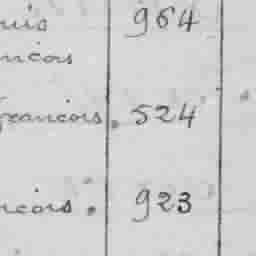 uis 964
ncois
francois. 524
ncois. 923